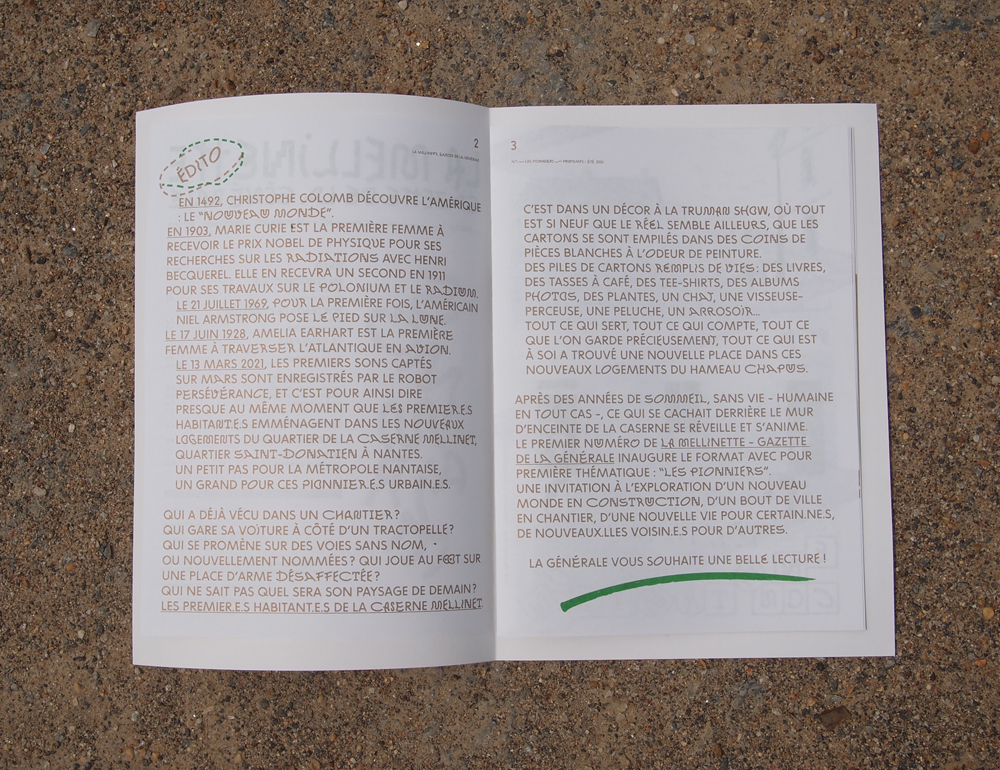 2
LA MELLINETTE, GAZETTE DE LA GÉNÉRALE
ÉDITO
EN 1492, CHRISTOPHE COLOMB DÉCOUVRE L'AMÉRIQUE
: LE "NOUVEAU MONDE".
EN 1903, MARIE CURIE EST LA PREMIÈRE FEMME À
RECEVOIR LE PRIX NOBEL DE PHYSIQUE POUR SES
RECHERCHES SUR LES RADIATIONS AVEC HENRI
BECQUEREL. ELLE EN RECEVRA UN SECOND EN 1911
POUR SES TRAVAUX SUR LE POLONIUM ET LE RADIUM.
LE 21 JUILLET 1969, POUR LA PREMIÈRE FOIS, L'AMÉRICAIN
NIEL ARMSTRONG POSE LE PIED SUR LA LUNE.
LE 17 JUIN 1928, AMELIA EARHART EST LA PREMIÈRE
FEMME À TRAVERSER L'ATLANTIQUE EN AVION.
LE 13 MARS 2021, LES PREMIERS SONS CAPTÉS
SUR MARS SONT ENREGISTRÉS PAR LE ROBOT
PERSÉVÉRANCE, ET C'EST POUR AINSI DIRE
PRESQUE AU MÊME MOMENT QUE LES PREMIER.E.S
HABITANT.E.S EMMÉNAGENT DANS LES NOUVEAUX
LOGEMENTS DU QUARTIER DE LA CASERNE MELLINET,
QUARTIER SAINT-DONATIEN À NANTES.
UN PETIT PAS POUR LA MÉTROPOLE NANTAISE,
UN GRAND POUR CES PIONNIER.E.S URBAIN.E.S.
QUI A DÉJÀ VÉCU DANS UN CHANTIER ?
QUI GARE SA VOITURE À CÔTÉ D'UN TRACTOPELLE ?
QUI SE PROMÈNE SUR DES VOIES SANS NOM,
OU NOUVELLEMENT NOMMÉES ? QUI JOUE AU FOOT SUR
UNE PLACE D'ARME DÉSAFFECTÉE ?
QUI NE SAIT PAS QUEL SERA SON PAYSAGE DE DEMAIN ?
LES PREMIER.E.S HABITANT.E.S DE LA CASERNE MELLINET.
3
C'EST DANS UN DÉCOR À LA TRUMAN SHOW, OÙ TOUT
EST SI NEUF QUE LE RÉEL SEMBLE AILLEURS, QUE LES
CARTONS SE SONT EMPILÉS DANS DES COINS DE
PIÈCES BLANCHES À L'ODEUR DE PEINTURE.
DES PILES DE CARTONS REMPLIS DE VIES : DES LIVRES,
DES TASSES À CAFÉ, DES TEE-SHIRTS, DES ALBUMS
PHOTOS, DES PLANTES, UN CHAT, UNE VISSEUSE-
PERCEUSE, UNE PELUCHE, UN ARROSOIR...
TOUT CE QUI SERT, TOUT CE QUI COMPTE, TOUT CE
QUE L'ON GARDE PRÉCIEUSEMENT, TOUT CE QUI EST
À SOI A TROUVÉ UNE NOUVELLE PLACE DANS CES
NOUVEAUX LOGEMENTS DU HAMEAU CHAPUS.
APRÈS DES ANNÉES DE SOMMEIL, SANS VIE - HUMAINE
EN TOUT CAS -, CE QUI SE CACHAIT DERRIÈRE LE MUR
D'ENCEINTE DE LA CASERNE SE RÉVEILLE ET S'ANIME.
LE PREMIER NUMÉRO DE LA MELLINETTE - GAZETTE
DE LA GÉNÉRALE INAUGURE LE FORMAT AVEC POUR
PREMIÈRE THÉMATIQUE : "LES PIONNIERS".
UNE INVITATION À L'EXPLORATION D'UN NOUVEAU
MONDE EN CONSTRUCTION, D'UN BOUT DE VILLE
EN CHANTIER, D'UNE NOUVELLE VIE POUR CERTAIN.NE.S,
DE NOUVEAUX.LLES VOISIN.E.S POUR D'AUTRES.
LA GÉNÉRALE VOUS SOUHAITE UNE BELLE LECTURE !